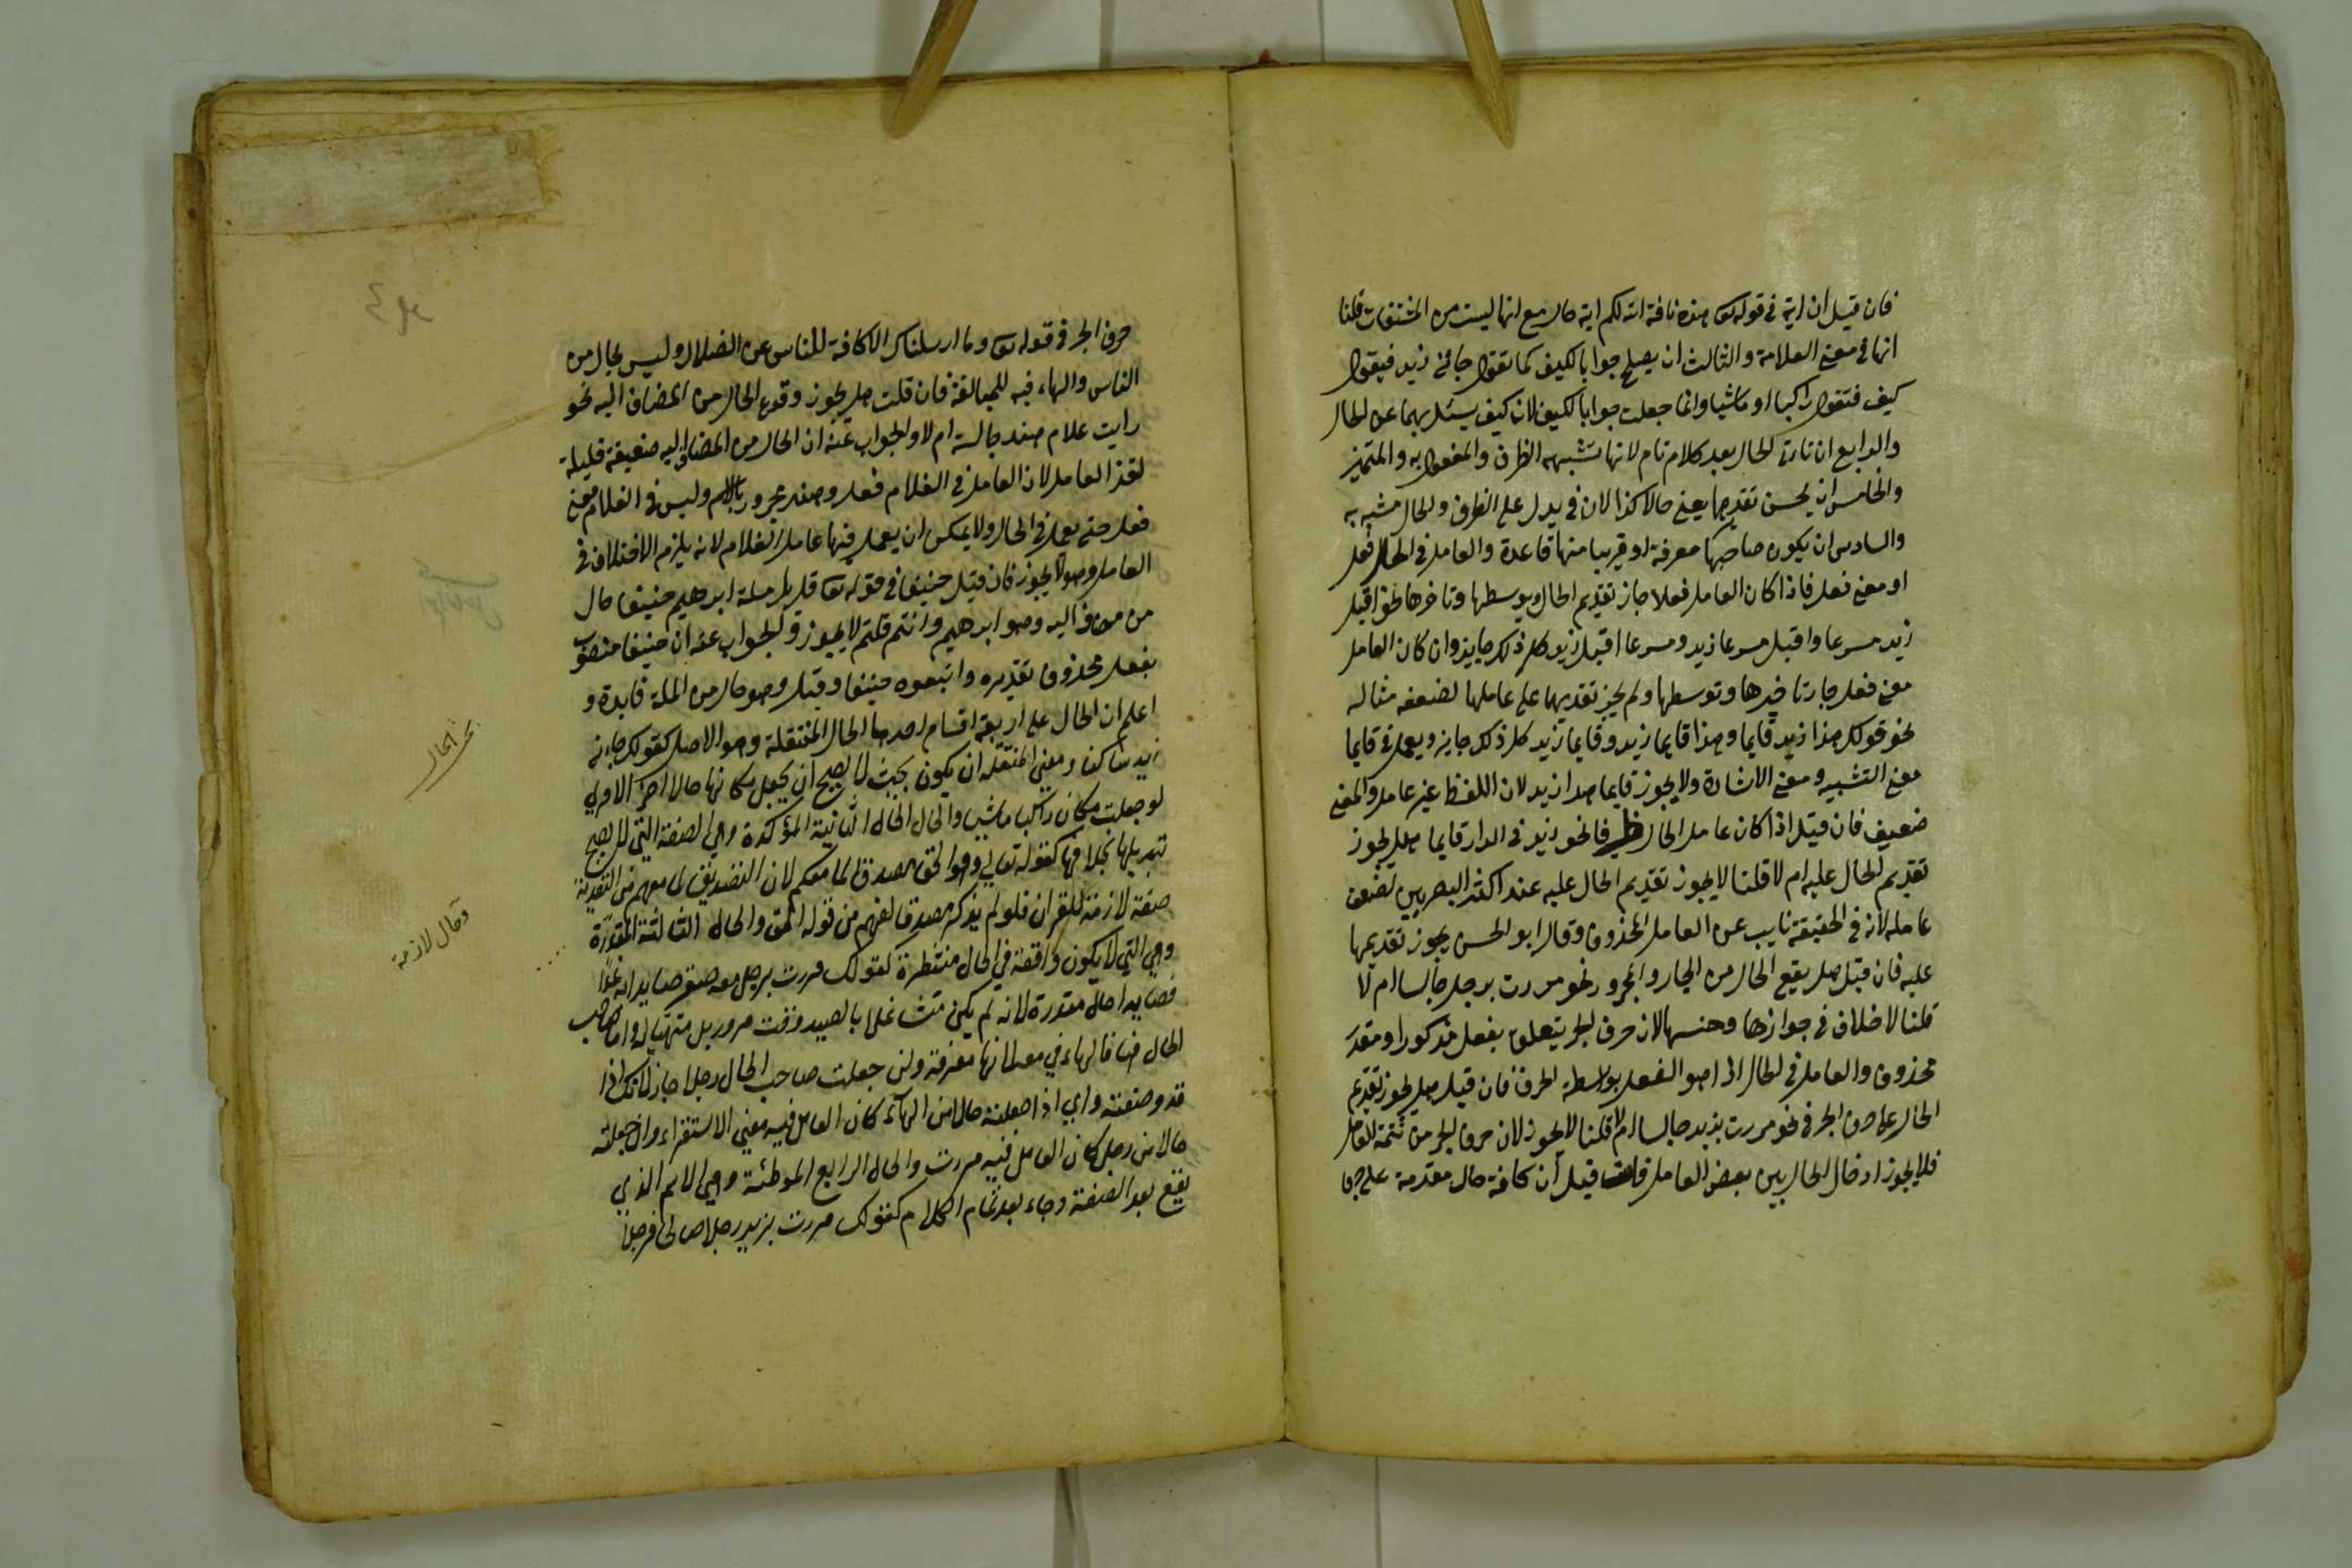 فان قيل ان اية في قوله تع هذه ناقة الله لكم اية حال مع انها ليست من المشتقات قلنا
انها في معنى العلامة والثالث ان يصلح جوابا لكيف كما تقول جائنى زيد فيقول
كيف فتقول راكبا او ماشيا وانما جعلت جوابا لكيف لان كيف يسئل بهما عن الحال
والرابع ان تاتى الحال بعد كلام تام لانها تشبهه الظرف والمفعول به والتميز
والخامس ان يحسن تقديرها يعنى حالا كذا لان في يدل على الظرف والحال مشبه به
والسادس ان يكون صاحبها معرفة او قريبا منها قاعدة والعامل في الحال فعل
او معنى فعل فاذا كان العامل فعلا جاز تقديم الحال وبوسطها وتاخرها نحو اقبل
زيد مسرعا واقبل مسرعا زيد ومسرعا اقبل زيد كل ذلك جايز وان كان العامل
معنى فعل جاز تاخيرها وتوسطها ولم يجز تقديمها على عاملها لضعفه مثاله
نحو قولك هذا زيد قايما وهذا قايما زيد وقايما زيد كل ذلك جايز ويعمل في قايما
معنى التشبيه ومعنى الاشارة ولا يجوز قايما هذا زيد لان اللفظ غير عامل والمعنى
ضعيف فان قيل اذا كان عامل الحال ظرفا نحو زيد في الدار قايما هل يجوز
تقديم الحال عليه ام لا قلنا لا يجوز تقديم الحال عليه عند اكثر البصريين لضعف
عامله لانه في الحقيقة نايب عن العامل المحذوف وقال ابو الحسن يجوز تقديمها
عليه فان قيل هل يقع الحال من الجار والمجرور نحو مررت برجل جالسا ام لا
قلنا لا خلاف في جوازها وحسنها لان حرف الجر يتعلق بفعل مذكور او مقدر
محذوف والعامل في الحال اذا هو الفعل بواسطة الحرف فان قيل هل يجوز تقديم
الحال على حرف الجر في نحو مررت بزيد جالسا ام لا قلنا لا يجوز لان حرف الجر من تتمة العامل
فلا يجوز ادخال الحال بين بعض العامل فان قيل ان كافة حال مقدمة على حرف
حرف الجر في قوله تع وما ارسلناك الا كافة للناس عن الضلال وليس بحال من
الناس والهاء فيه للمبالغة فان قلت هل يجوز وقوع الحال من المضاف اليه نحو
رايت غلام هند جالسة ام لا والجواب عنه ان الحال من المضاف اليه ضعيفة قليلة
لان العامل في الغلام فعل وهند مجرور باللام وليس في الغلام معنى
فعل حتى يعمل في الحال ولا يمكن ان يعمل فيها عامل الغلام لانه يلزم الاختلاف في
العامل وهو لا يجوز فان قيل حنيفا في قوله تع قل بل ملة ابرهيم حنيفا حال
من مضاف اليه وهو ابرهيم وانتم قلتم لا يجوز والجواب عنه ان حنيفا منصوب
بفعل محذوف تقديره واتبعوه حنيفا وقيل وهو حال من الملة فايدة و
اعلم ان الحال على اربعة اقسام احدها الحال المنتقلة وهو الاصل كقولك جاءنى
زيد راكبا ومعنى المنتقلة ان يكون بحيث يصح ان يجعل مكانها حالا اخر الا ترى
لو جعلت مكان راكبا ماشيا والحال الحال الثانية المؤكدة وهي الصفة التي لا يصح
تبديلها بخلافها كقوله تعالى وهو الحق مصدقا لما معكم لان التصديق لما معهم من التورية
صفة لازمة للقران فلو لم يذكر مصدقا لفهم من قوله الحق والحال الثالثة المقدرة
وهي التي لا يكون واقعة في الحال منتظرة كقولك مررت برجل معه صقر صايدا به غدا
فصايدا حال مقدرة لانه لم يكن متشاغلا بالصيد وقت مرور بل متهيأ له واما صاحب
الحال هنا فالهاء في معه لانها معرفة ولئن جعلت صاحب الحال رجلا جاز لانك اذا
قد وصفته واي اذا جعلته حالا من الهاء كان العامل فيه معنى الاستقرار وان جعلته
حالا من رجل كان العامل فيه مررت والحال الرابع الموطئة وهي الاسم الذي
يقع بعد الصفة وجاء بعد تمام الكلام كقولك مررت بزيد رجلا صالحا فرجلا
بحث الحال
وحال لازمة